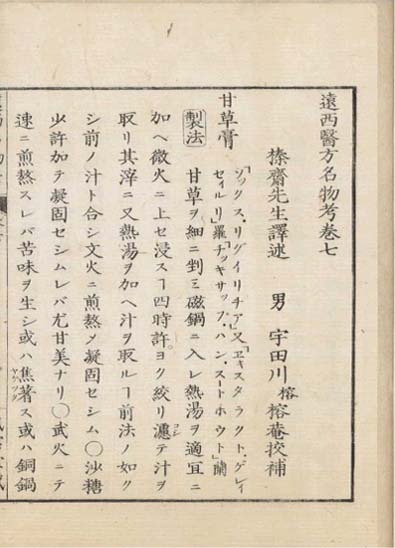 遠西醫方名物考卷七
榛齋先生譯述　男　宇田川榕榕菴挍補
甘草膏
「ソックス、リグイリチア」又「ヱキスタラクト、ゲレイ
セイルリ」羅「ヂッキサップ、ハン、スートホウト」蘭
製法　甘草ヲ細ニ剉ミ磁鍋ニ入レ熱湯ヲ適宜ニ
加ヘ微火ニ上セ浸スヿ四時許。ヨク絞リ濾テ汁ヲ
取リ其滓ニ又熱湯ヲ加ヘ汁ヲ取ルヿ前法ノ如ク
シ前ノ汁ト合シ文火ニ煎熬メ凝固セシム〇沙糖
少許加テ凝固セシムレバ尤甘美ナリ〇武火ニテ
速ニ煎熬スレバ苦味ヲ生シ或ハ焦著ス或ハ銅鍋